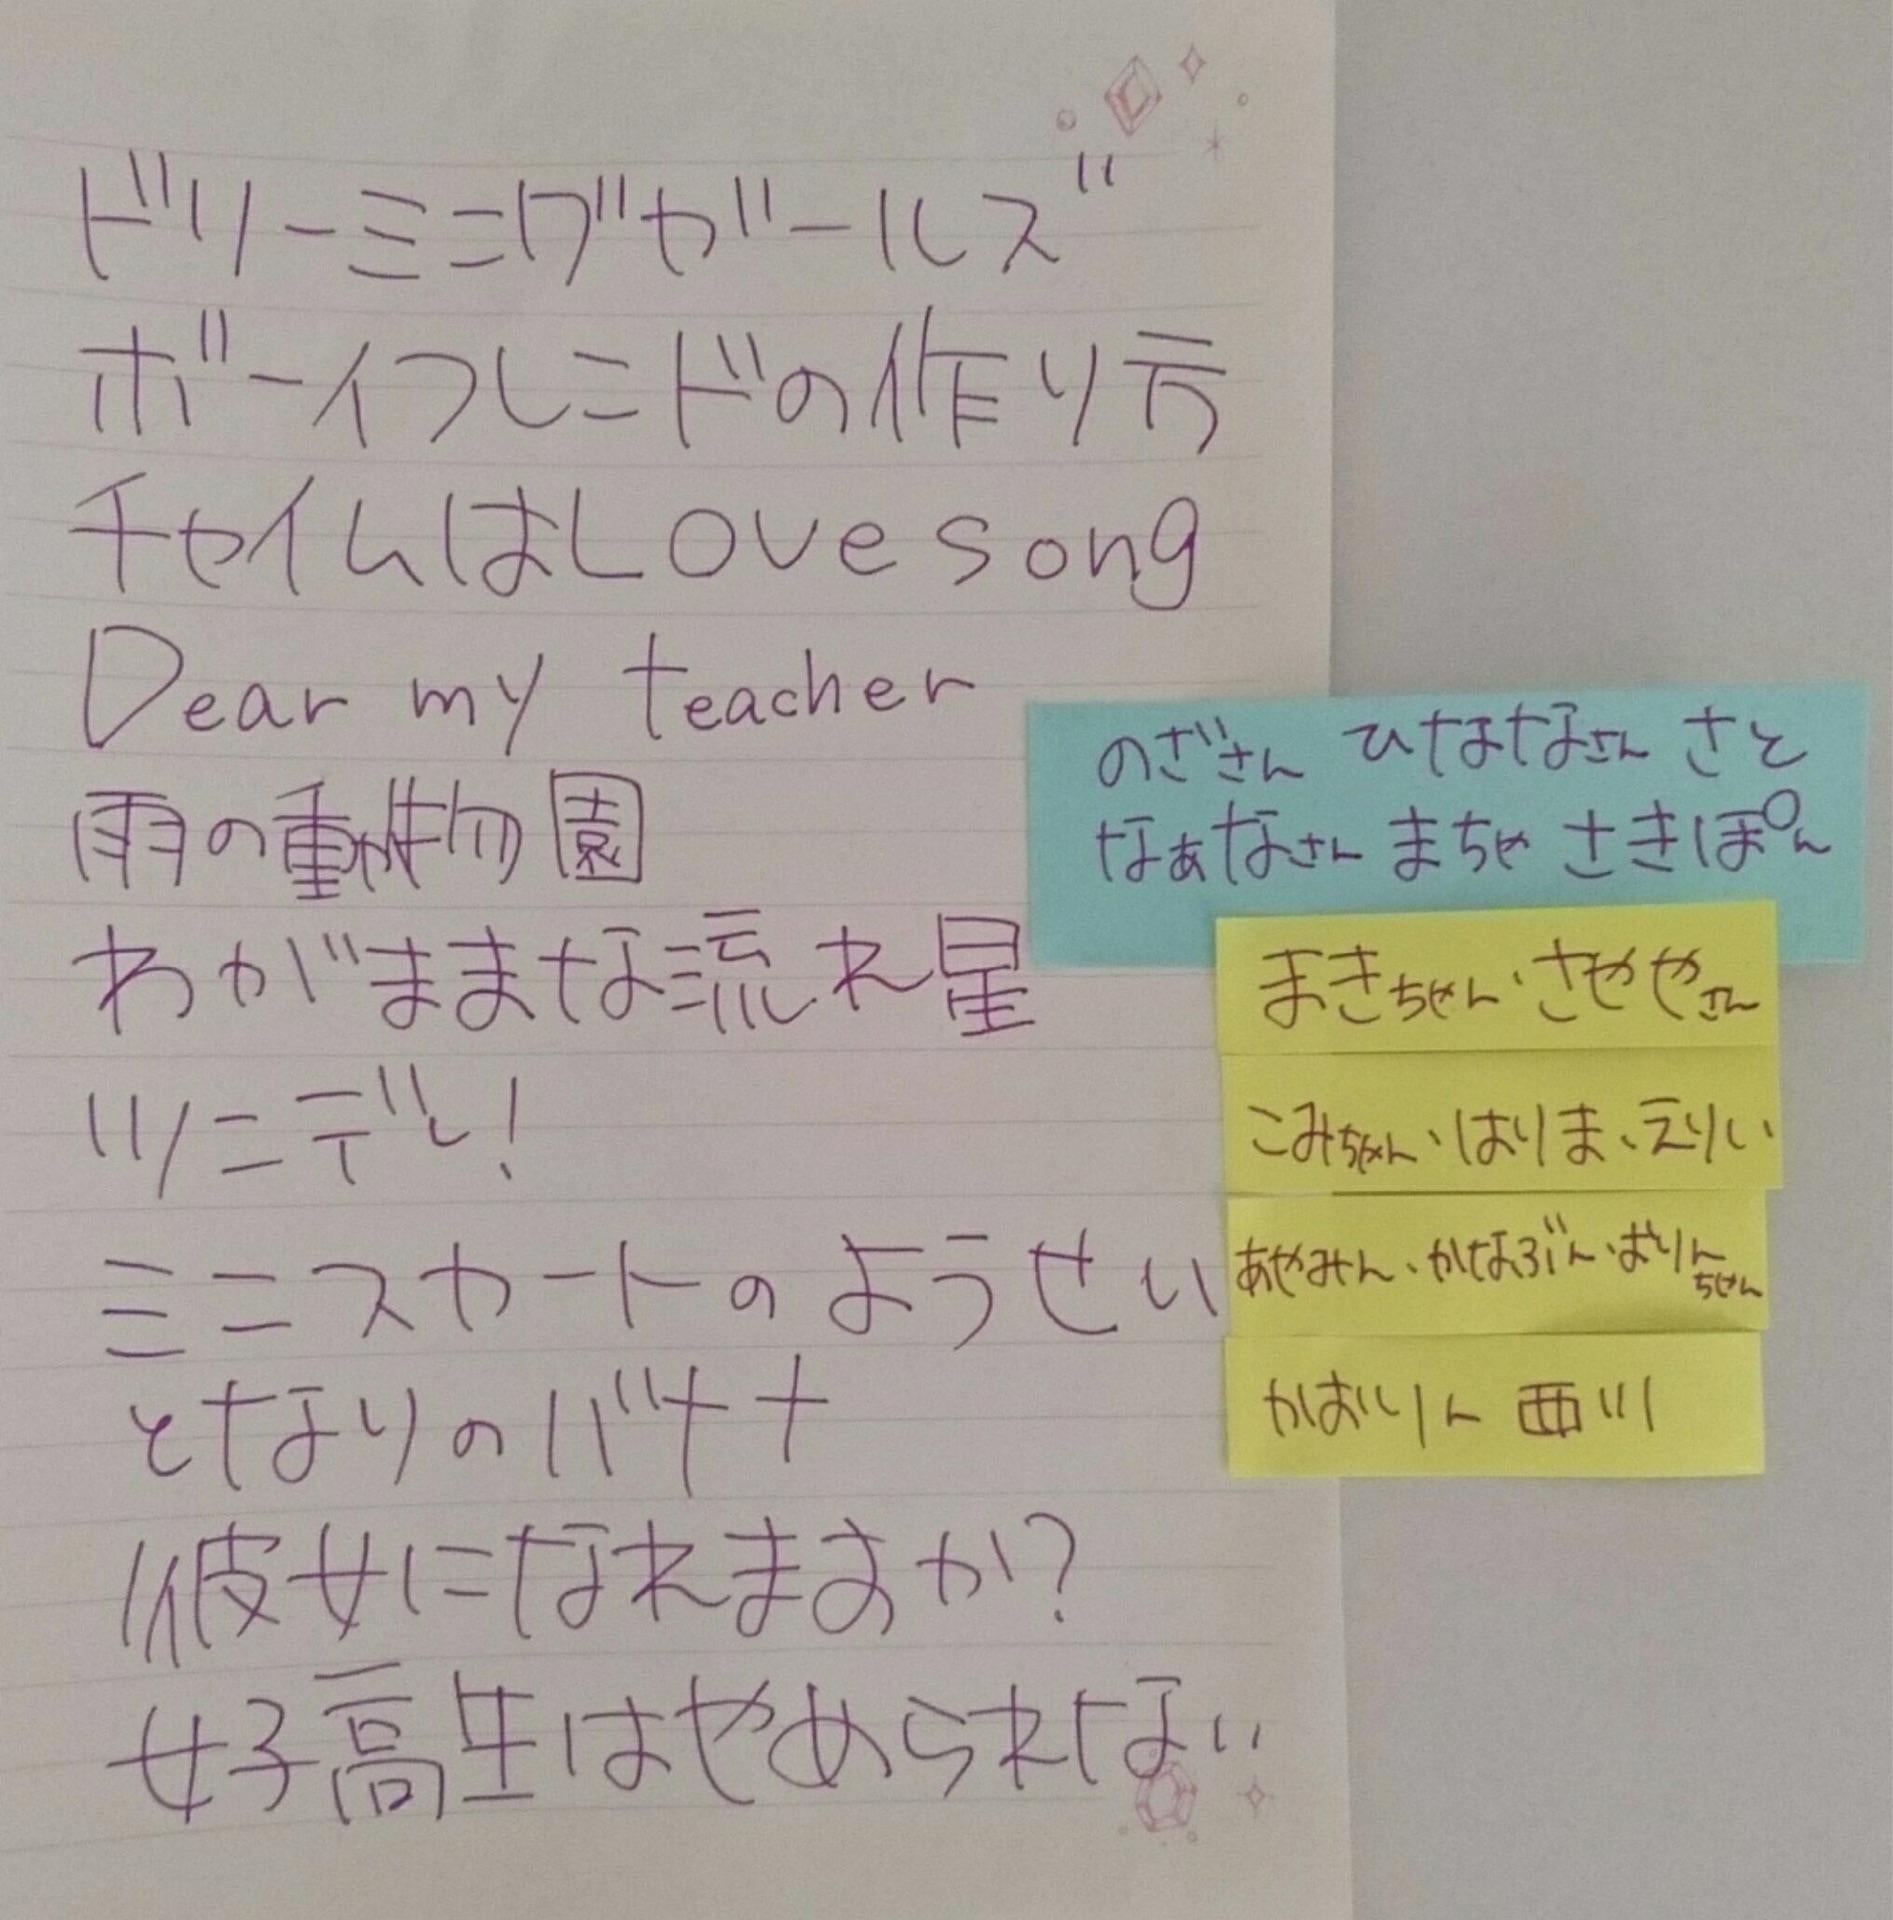 ドリーミニグガールズ
ボーイフレニドの作り方
チャイムはLove song
Dear my teacher
雨の動物園
わがままな流れ星
ツニデレ!
ミニスカートのようせい
となりのバナナ
彼女になれますか?
女子高生はやめられない
のざさん ひななさん さと
なぁなさん まちゃ さきぽん
まきちゃん・さややさん
こみちゃん、はりま、えりい
あやみん、かなぶん・おりんちゃん
かおりん 西川